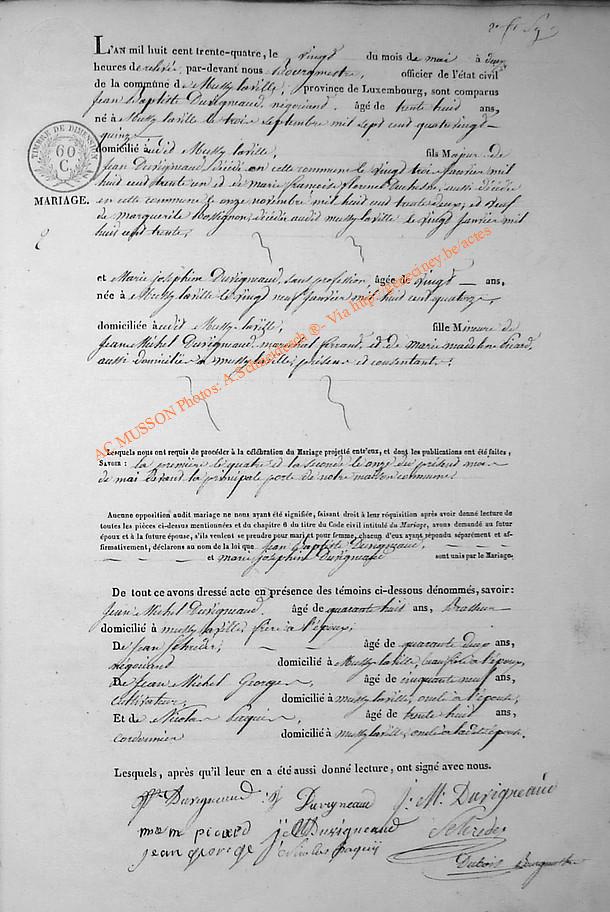 L'AN mil huit cent trente-quatre, le vingt du mois de mai à deux
heures de relevée, par-devant nous Bourgmestre, officier de l'état civil
de la commune de Mussy laville, province de Luxembourg, sont comparus
Jean Baptiste Duvigneaud, négociant, âgé de trente huit ans,
né à Mussy laville le trois septembre mil sept cent quatre vingt
quinze
domicilié audit Mussy laville, fils Majeur de
Jean Duvigneaud décédé en cette commune le vingt trois janvier mil
huit cent trente un et de Marie françoise florence aussi décédée
en cette commune le onze novembre mil huit cent trente deux, et veuf
de Marguerite Rossignon, décédée audit mussy laville le vingt janvier mil
huit cent trente,
MARIAGE.
TIMBRE DE DIMENSION
60 C.
et Marie joséphine Duvigneaud, sans profession, âgée de vingt ans,
née à Mussy laville le vingt neuf janvier mil huit cent quatorze,
domiciliée audit Mussy laville, fille Mineure de
Jean Michel Duvigneaud, maréchal ferrant, et de Marie madelon Picard,
aussi domiciliés à mussy laville, présens et consentants.
Lesquels nous ont requis de procéder à la célébration du Mariage projetté entr'eux, et dont les publications ont été faites,
SAVOIR : la première le quatre et la seconde le onze du présent mois
de mai devant la principale porte de notre maison commune
Aucune opposition audit mariage ne nous ayant été signifiée, faisant droit à leur réquisition après avoir donné lecture de
toutes les pièces ci-dessus mentionnées et du chapitre 6 du titre du Code civil intitulé du Mariage, avons demandé au futur
époux et à la future épouse, s'ils veulent se prendre pour mari et pour femme, chacun d'eux ayant répondu séparément et af-
firmativement, déclarons au nom de la loi que Jean Baptiste Duvigneaud,
et marie joséphine Duvigneaud sont unis par le Mariage.
De tout ce avons dressé acte en présence des témoins ci-dessous dénommés, savoir:
Jean Michel Duvigneaud âgé de quarante huit ans, Brasseur
domicilié à mussy laville, frère à l'époux,
De Jean Schreder, âgé de quarante deux ans,
négociant domicilié à Mussy laville, beau frère à l'époux,
De Jean Michel George, âgé de cinquante neuf ans,
cultivateur, domicilié à mussy laville, oncle à l'épouse,
Et de Nicolas âgé de trente huit ans,
cordonnier domicilié à mussy laville, oncle à ladite épouse.
Lesquels, après qu'il leur en a été aussi donné lecture, ont signé avec nous.
Duvigneaud Duvigneaud J. M. Duvigneaud
m m picard J M Duvigneaud Schreder
jean george nicolas paquij
Dubois Bourgmestre
AC MUSSON Photos: A.Schleigbach ®- Via http://geneciney.be/actes